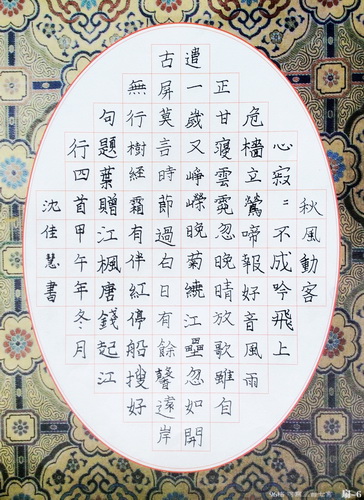 秋風動客
心寂〻不成吟飛上
危檣立鶯啼報好音風雨
正甘寢雲霓忽晚晴放歌雖自
遣一歲又崢嶸晚菊繞江壘忽如開
古屏莫言時節過白日有餘馨遠岸
無行樹經霜有伴紅停船搜好
句題葉贈江楓唐錢起江
行四首甲午年冬月
沈佳慧書